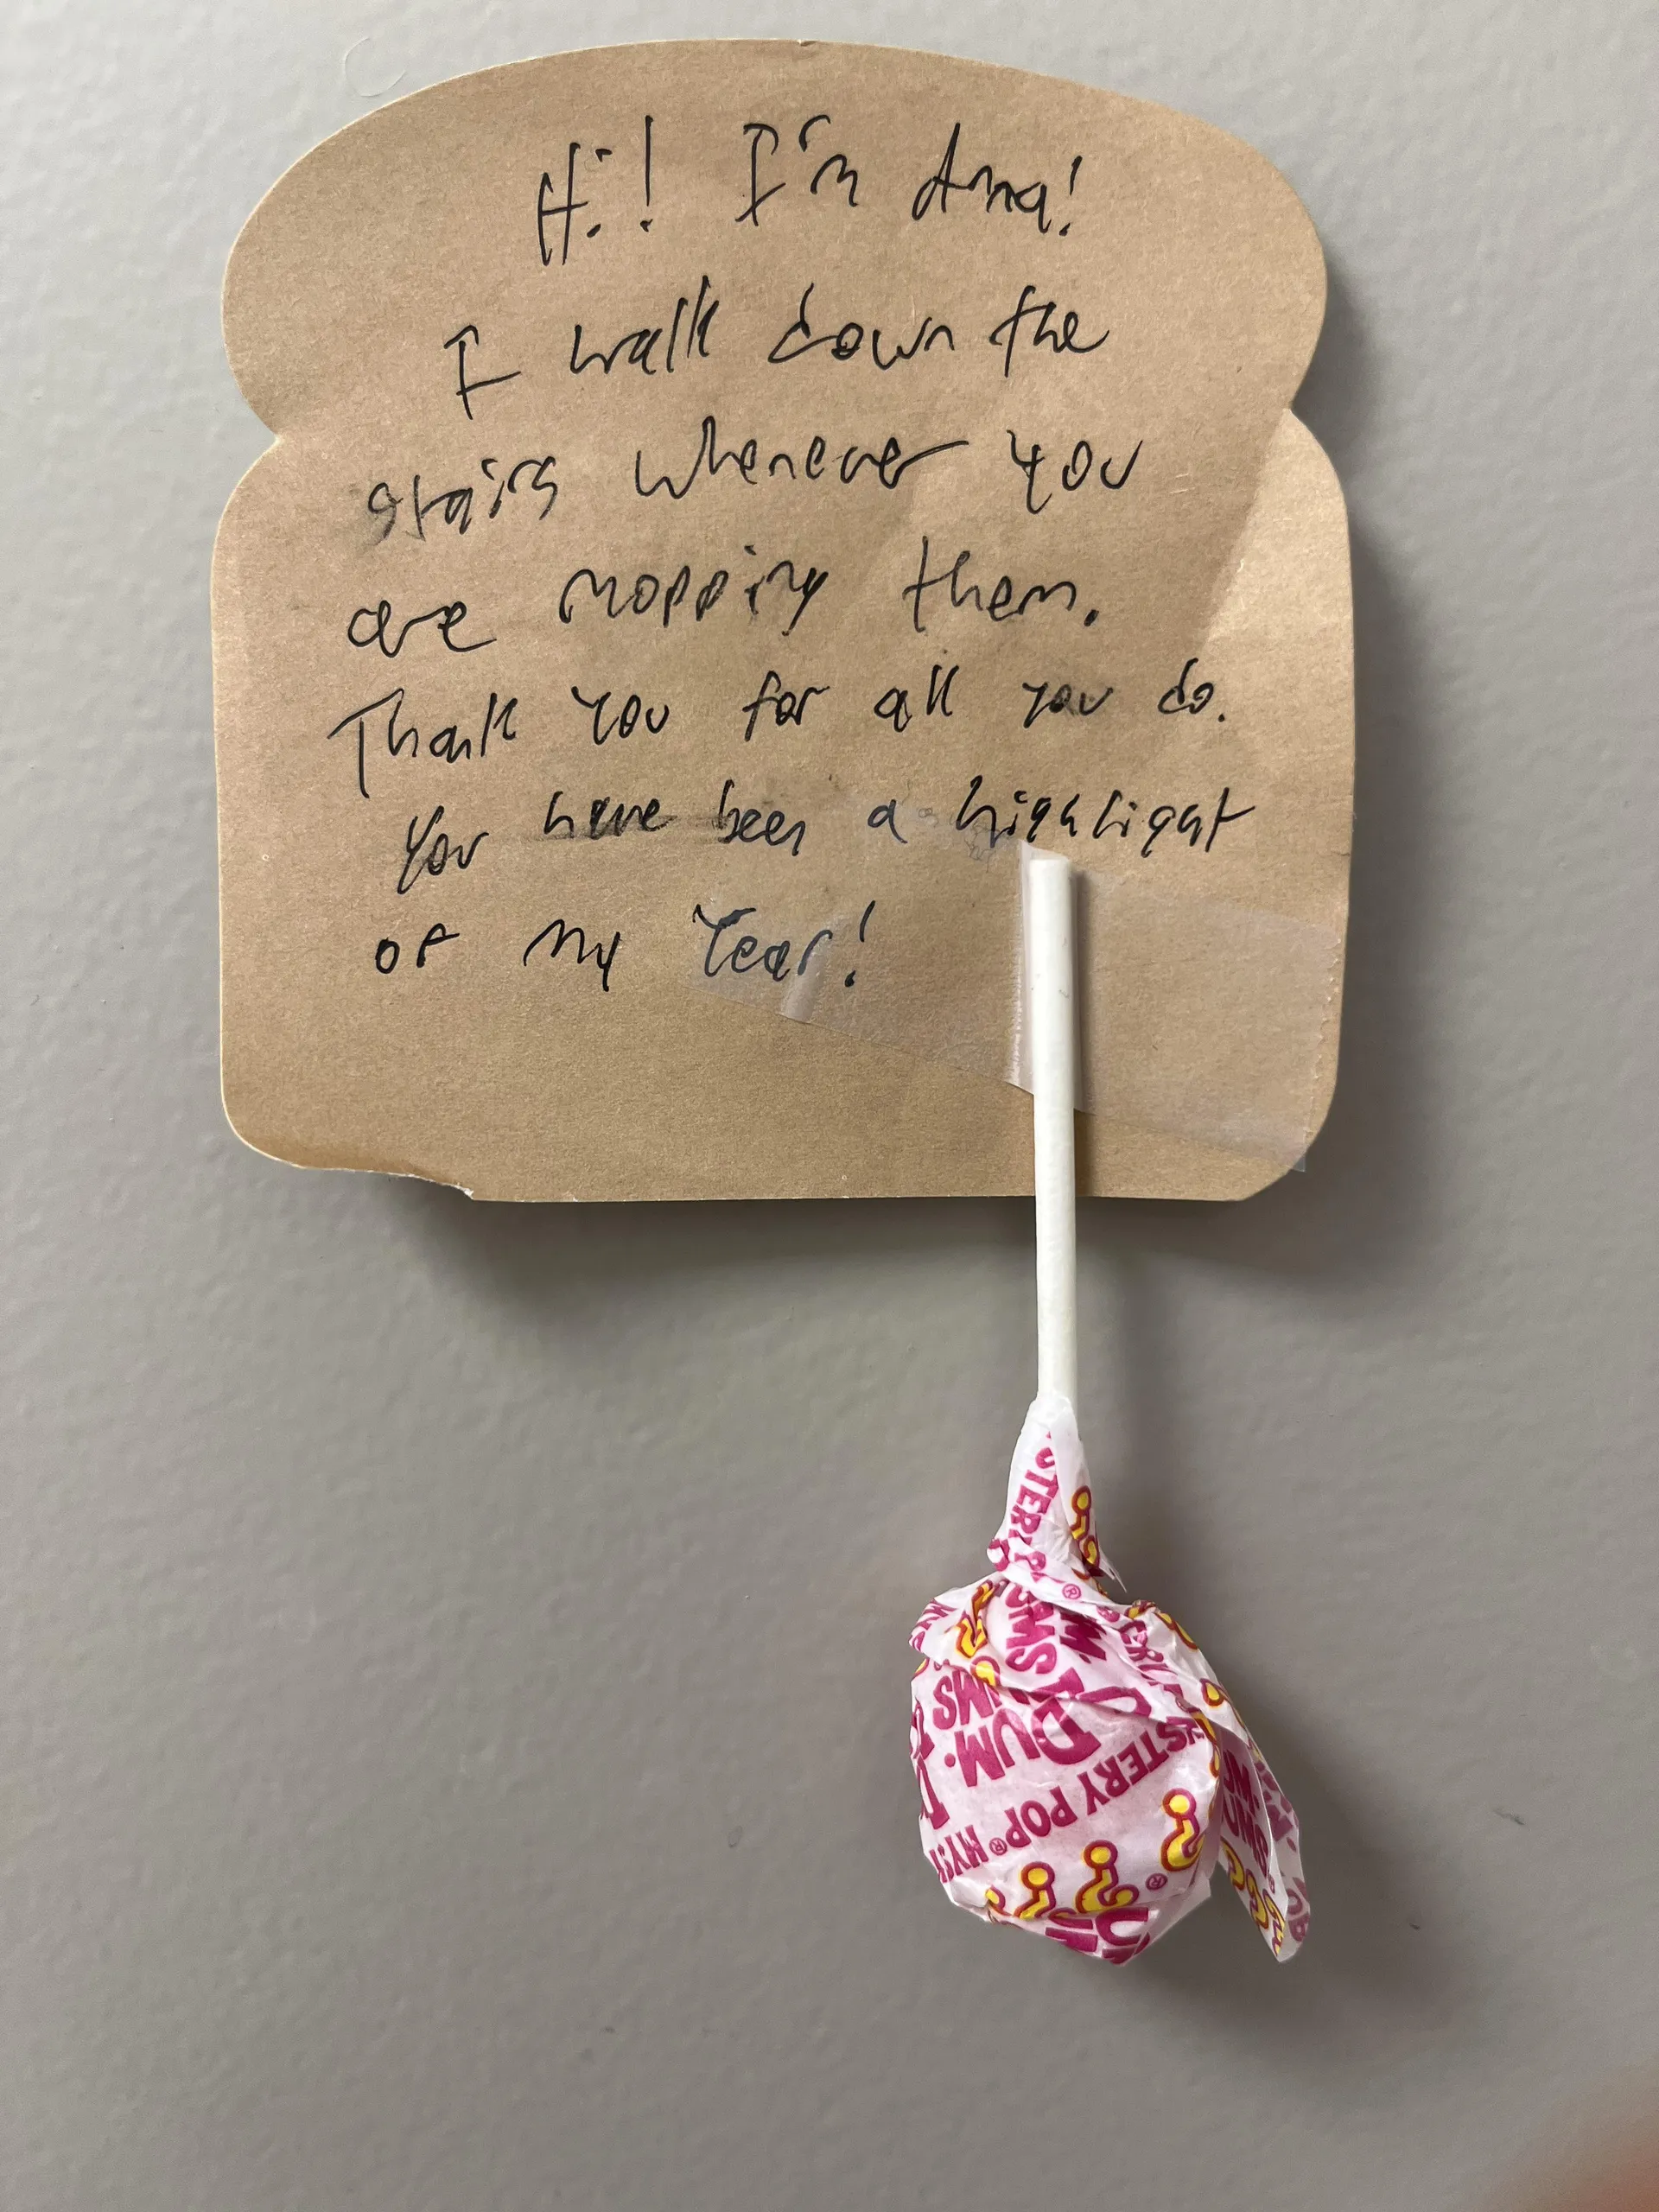 Hi! I'm Anna!
I walk down the
stairs whenever you
are mopping them.
Thank you for all you do.
You have been a highlight
of my Year!
DUM DUMS
MYSTERY POP®